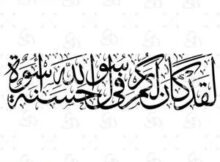 لقد كان لكم في رسول الله أسوة حسنة